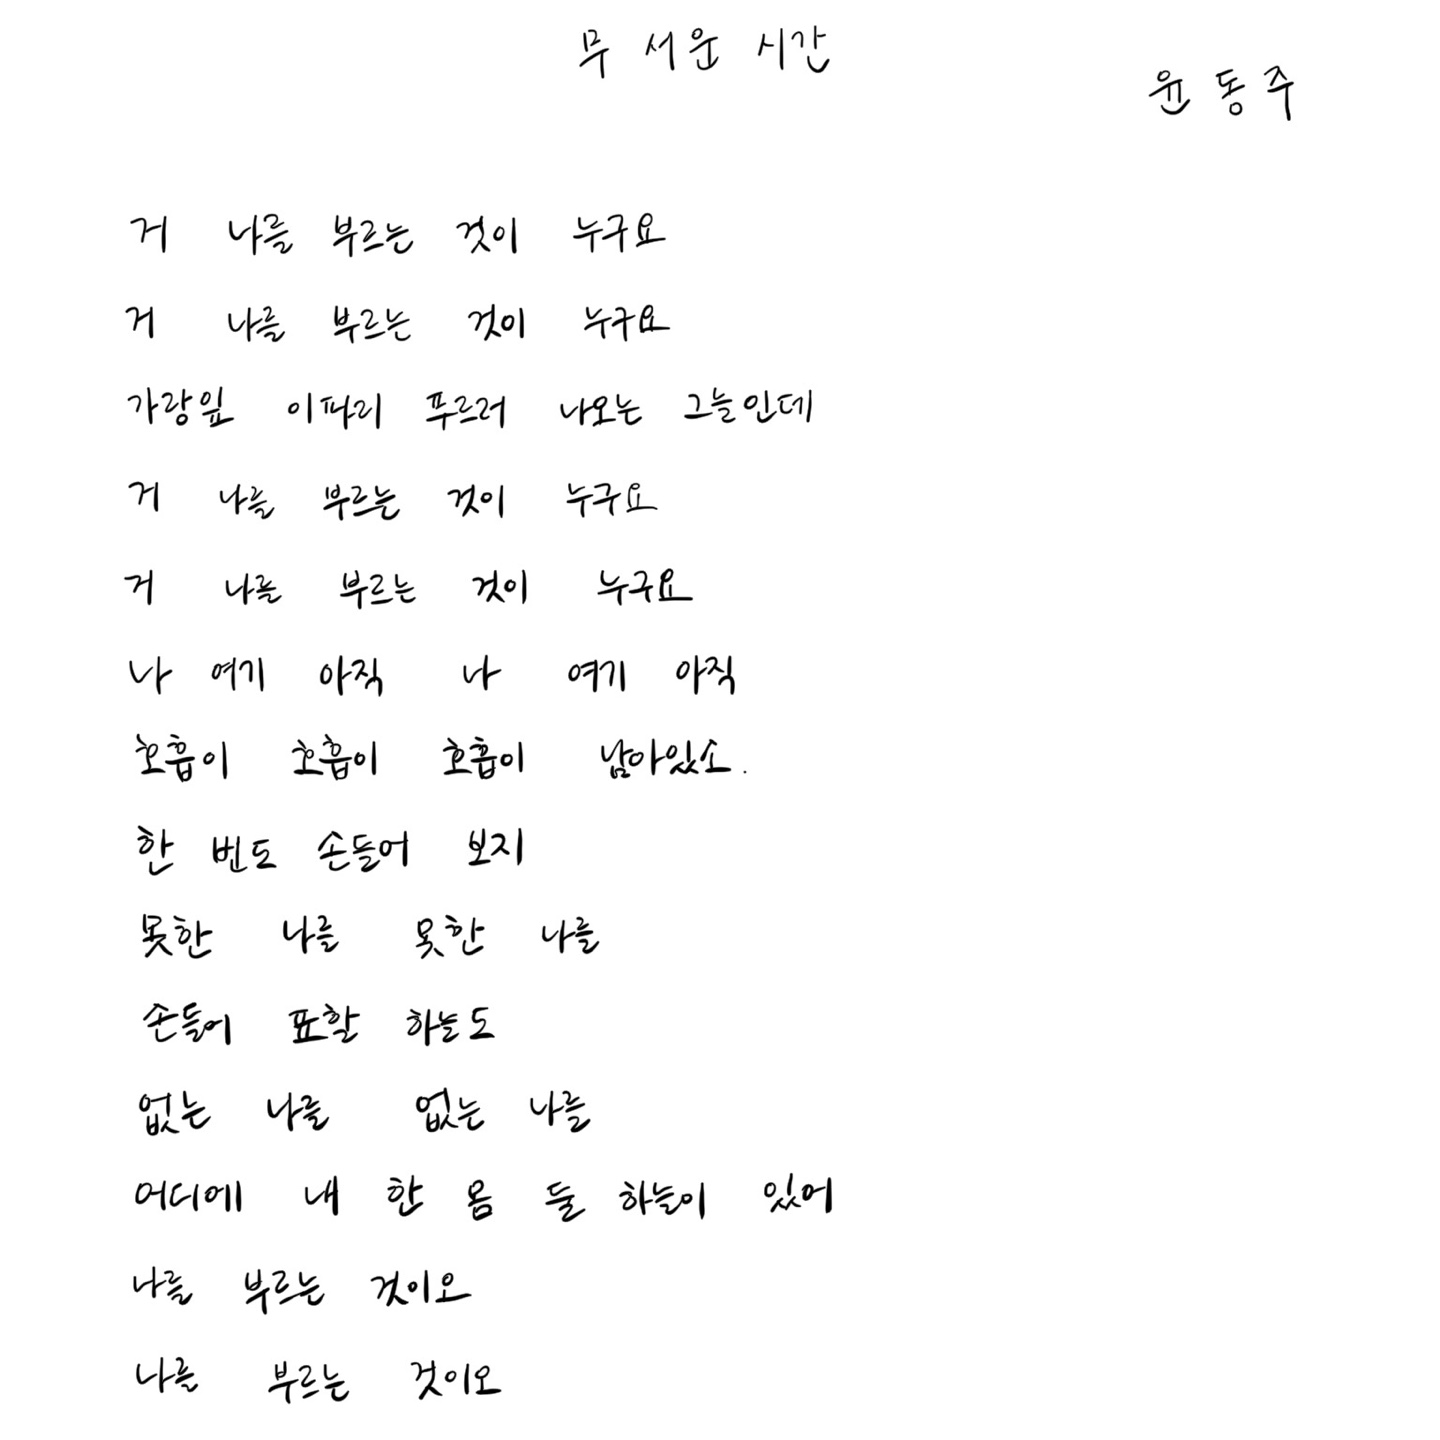 무서운 시간
윤동주
거 나를 부르는 것이 누구요
거 나를 부르는 것이 누구요
가랑잎 이파리 푸르러 나오는 그늘인데
거 나를 부르는 것이 누구요
거 나를 부르는 것이 누구요
나 여기 아직 나 여기 아직
호흡이 호흡이 호흡이 남아있소.
한 번도 손들어 보지
못한 나를 못한 나를
손들어 표할 하늘도
없는 나를 없는 나를
어디에 내 한 몸 둘 하늘이 있어
나를 부르는 것이오
나를 부르는 것이오